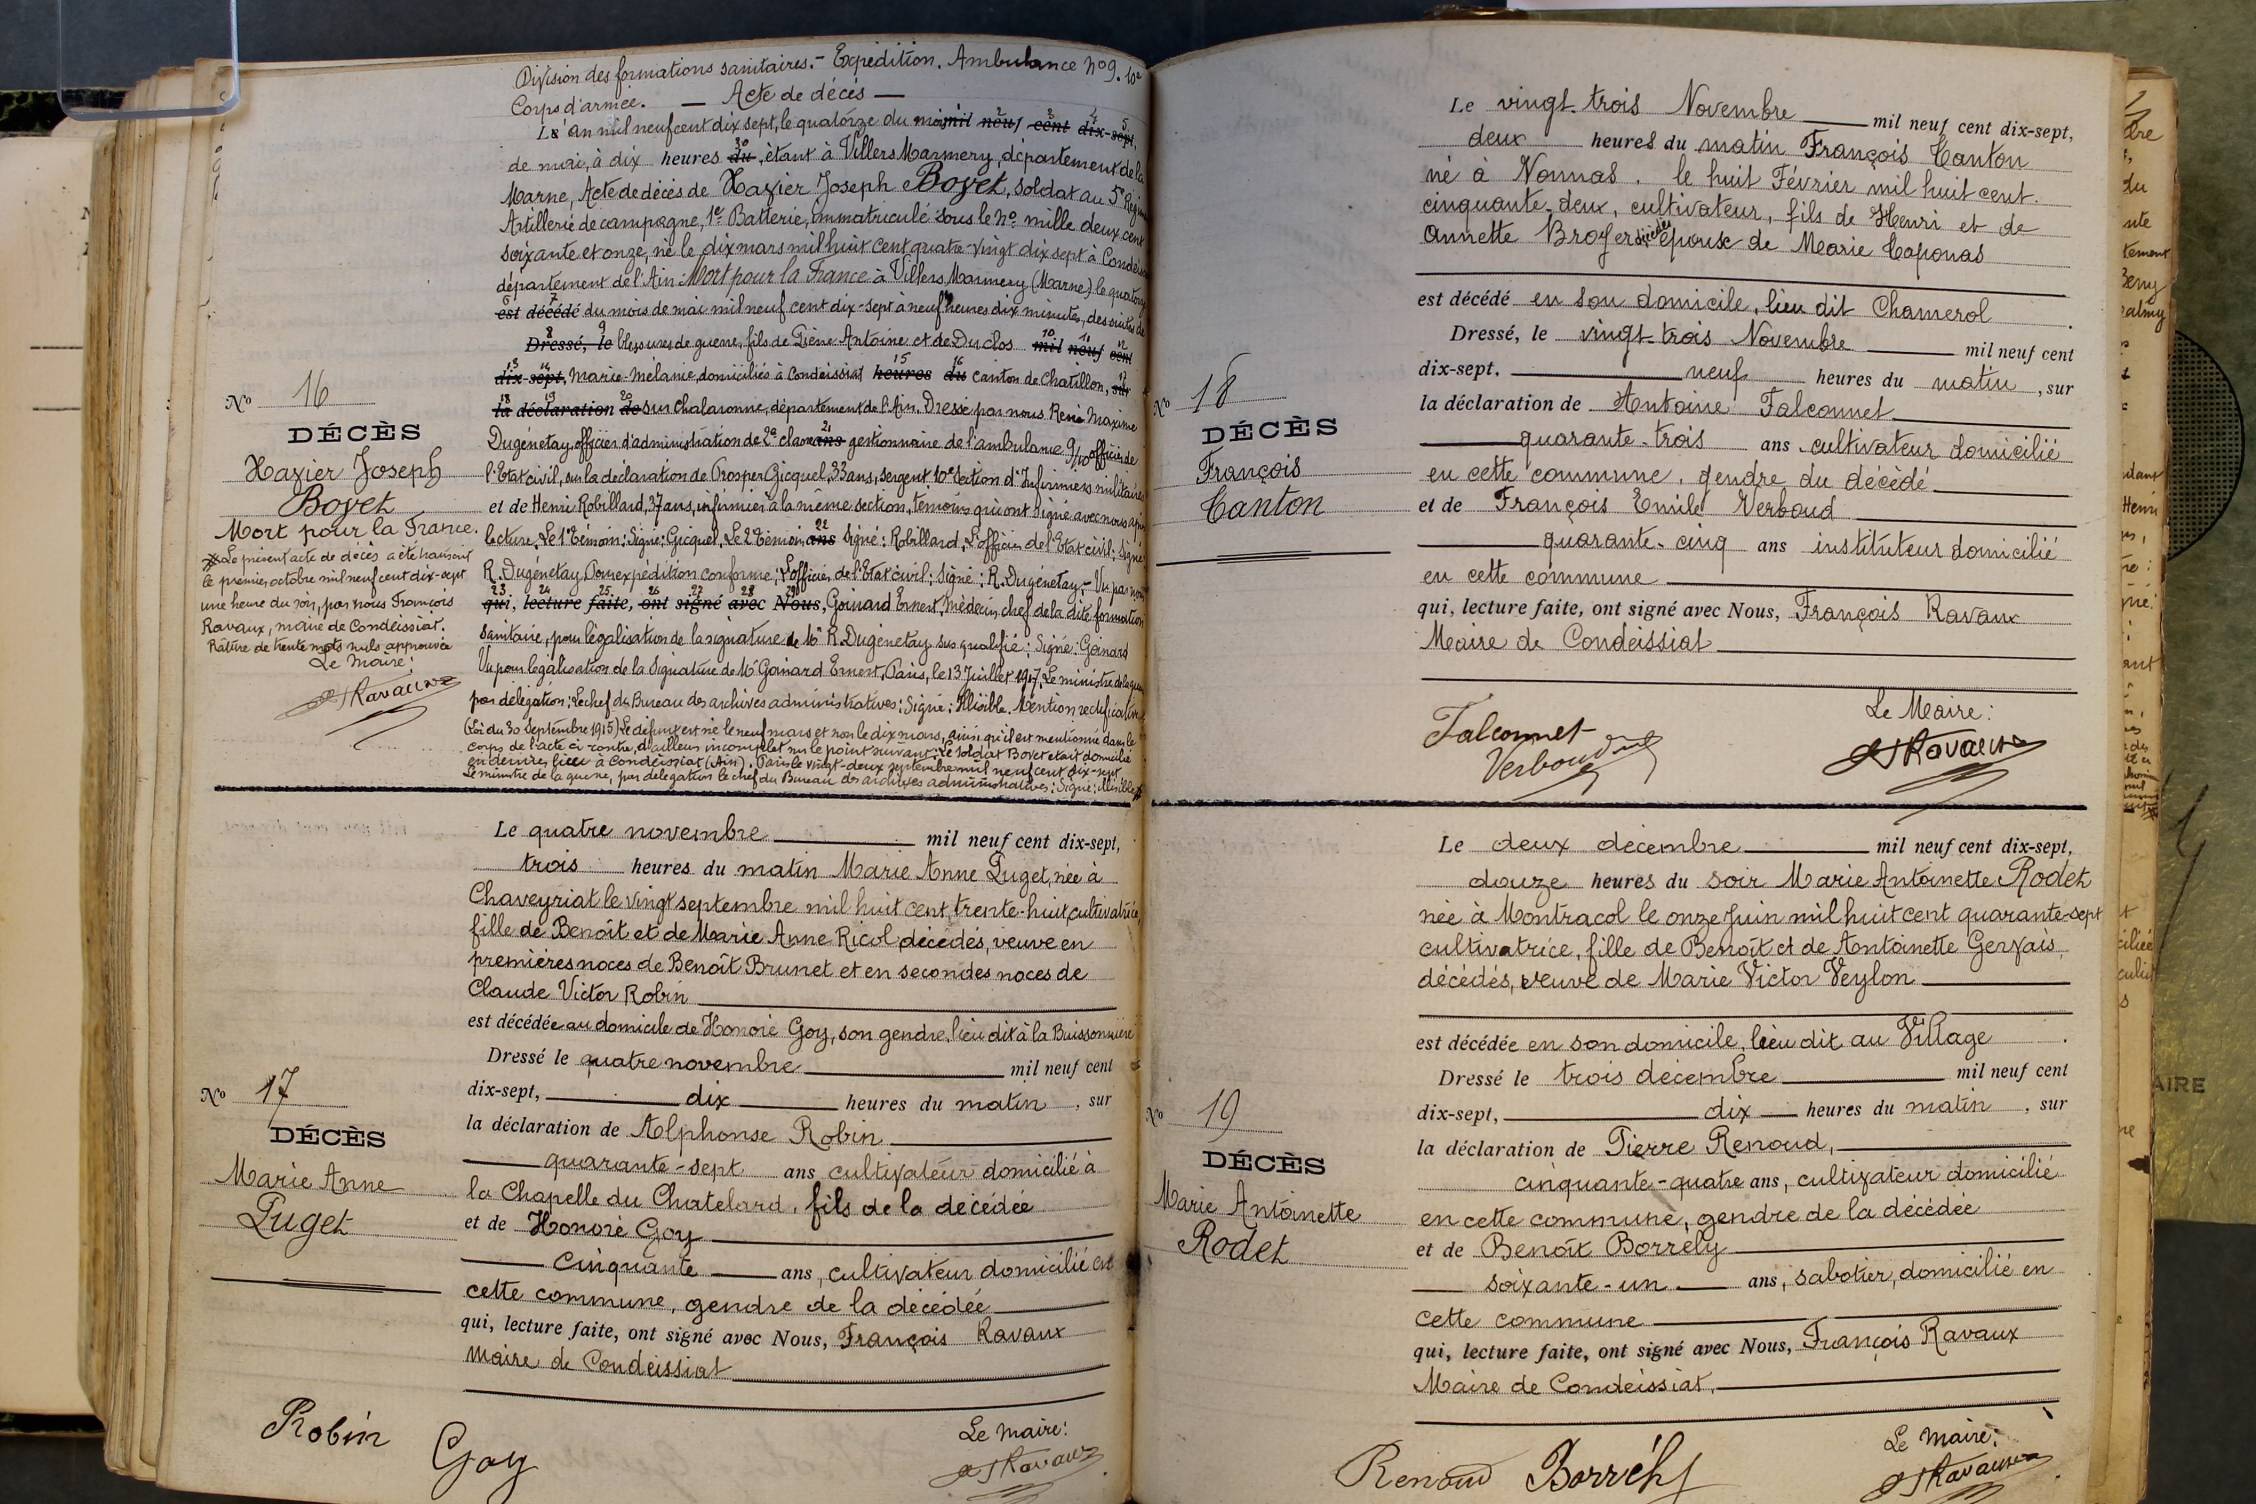 Division des formations sanitaires.- Expédition. Ambulance No 9. 10e
Corps d'armée. — Acte de décès —
L'an mil neuf cent dix sept, le quatorze du mois mil neuf cent dix-sept,
de mai, à dix heures du, étant à Villers Marmery, département de la
Marne, Acte de décès de Xavier Joseph Boyet, soldat au 5e Régim
Artillerie de campagne, 1e Batterie, immatriculé sous le No mille deux cent
soixante et onze, né le dix mars mil huit cent quatre-vingt dix sept à Condeis
département de l'Ain. Mort pour la France à Villers Marmery (Marne) le quatorze
est décédé du mois de mai mil neuf cent dix-sept à neuf heures dix minutes, des suites de
Dressé, le blessures de guerre, fils de Pierre Antoine et de Duclos mil neuf cent
dix-sept, Marie-Mélanie, domiciliés à Condeissiat heures du canton de Chatillon, sur
la déclaration de sur Chalaronne, département de l'Ain. Dressé par nous René Maxime
Dugénetay, officier d'administration de 2e classe ans gestionnaire de l'ambulance 9/10 officier de
l'Etat civil, sur la déclaration de Prosper Gicquel, 33 ans, sergent 10e Section d'Infirmiers militaires
et de Henri Robillard, 37 ans, infirmier à la même section, témoins qui ont signé avec nous après
lecture. Le 1e Témoin: Signé: Gicquel. Le 2e Témoin ans Signé: Robillard. L'officier de l'Etat civil: Signé
R. Dugénetay. Pour expédition conforme; L'officier de l'Etat civil: Signé: R. Dugénetay.- Vu par nous
qui, lecture faite, ont signé avec Nous, Goinard Ernest, Médecin chef de la dite formation
sanitaire, pour légalisation de la signature de Mr R. Dugénetay sus qualifié: Signé: Goinard
Vu pour légalisation de la Signature de Mr Goinard Ernest, Paris, le 13 Juillet 1917. Le ministre de la guerre
par délégation: Le chef du Bureau des archives administratives: Signé: Illisible. Mention rectificative
(Loi du 30 Septembre 1915) Le défunt est né le neuf mars et non le dix mars, ainsi qu'il est mentionné dans le
corps de l'acte ci contre, d'ailleurs incomplet sur le point suivant: Le soldat Boyet était domicilié
en dernier lieu à Condeissiat (Ain). Paris le vingt-deux septembre mil neuf cent dix-sept
Le ministre de la guerre, par délégation le chef du Bureau des archives administratives: Signé: illisible
No 16
DÉCÈS
Xavier Joseph
Boyet
Mort pour la France.
Le présent acte de décès a été transcrit
le premier octobre mil neuf cent dix-sept
une heure du soir, par nous François
Ravaux, maire de Condeissiat.
Râture de trente mots nuls approuvée
Le Maire:
Ravaux
Le quatre novembre mil neuf cent dix-sept,
trois heures du matin Marie Anne Puget, née à
Chaveyriat le vingt septembre mil huit cent trente-huit, cultivatrice,
fille de Benoît et de Marie Anne Ricol décédés, veuve en
premières noces de Benoît Brunet et en secondes noces de
Claude Victor Robin
est décédée au domicile de Honoré Goy, son gendre, lieu dit à la Buissonnière
Dressé le quatre novembre mil neuf cent
dix-sept, dix heures du matin, sur
la déclaration de Alphonse Robin
quarante-sept ans cultivateur domicilié à
la Chapelle du Chatelard, fils de la décédée
et de Honoré Goy
cinquante ans, cultivateur domicilié en
cette commune, gendre de la décédée
qui, lecture faite, ont signé avec Nous, François Ravaux
Maire de Condeissiat
No 17
DÉCÈS
Marie Anne
Puget
Robin Goy
Le Maire:
Ravaux
Le vingt-trois Novembre mil neuf cent dix-sept,
deux heures du matin François Canton
né à Nonnas, le huit Février mil huit cent
cinquante-deux, cultivateur, fils de Henri et de
Annette Broyer décédés époux de Marie Caponas
est décédé en son domicile, lieu dit Chamerol.
Dressé, le vingt-trois Novembre mil neuf cent
dix-sept. neuf heures du matin, sur
la déclaration de Antoine Falconnet
quarante-trois ans cultivateur domicilié
en cette commune, gendre du décédé
et de François Emile Verboud
quarante-cinq ans instituteur domicilié
en cette commune
qui, lecture faite, ont signé avec Nous, François Ravaux
Maire de Condeissiat
No 18
DÉCÈS
François
Canton
Falconnet
Verboud
Le Maire:
Ravaux
Le deux décembre mil neuf cent dix-sept,
douze heures du soir Marie Antoinette Rodet
née à Montracol le onze Juin mil huit cent quarante-sept
cultivatrice, fille de Benoît et de Antoinette Gervais,
décédés, veuve de Marie Victor Veylon
est décédée en son domicile, lieu dit au Village.
Dressé le trois décembre mil neuf cent
dix-sept, dix heures du matin, sur
la déclaration de Pierre Renoud,
cinquante-quatre ans, cultivateur domicilié
en cette commune, gendre de la décédée
et de Benoît Borrély
soixante-un ans, sabotier, domicilié en
cette commune
qui, lecture faite, ont signé avec Nous, François Ravaux
Maire de Condeissiat,
No 19
DÉCÈS
Marie Antoinette
Rodet
Renoud Borrély
Le Maire:
Ravaux